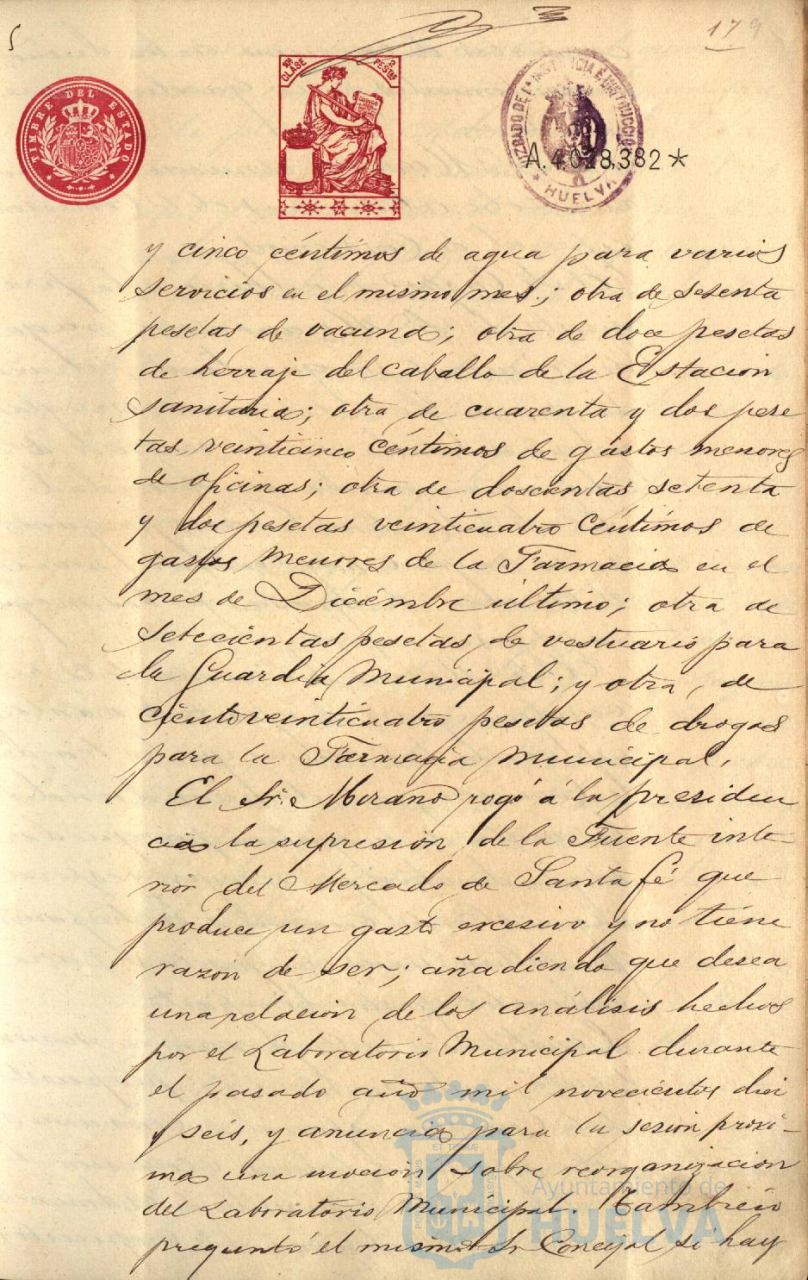 179
TIMBRE DEL ESTADO
10ª CLASE 2 PESETAS
JUZGADO DE 1ª INSTANCIA E INSTRUCCIÓN
HUELVA
A.4028,382*
y cinco céntimos de agua para varios
servicios en el mismo mes; otra de sesenta
pesetas de vacuna; otra de doce pesetas
de herraje del caballo de la Estación
sanitaria; otra de cuarenta y dos pese
tas veinticinco céntimos de gastos menores
de oficinas; otra de doscientas setenta
y dos pesetas veinticuatro céntimos de
gastos menores de la Farmacia en el
mes de Diciembre último; otra de
setecientas pesetas de vestuario para
la Guardia Municipal; y otra, de
cientoveinticuatro pesetas de drogas
para la Farmacia Municipal.
El Sr. Morano rogó á la presiden
cia la supresión de la Fuente inte-
rior del Mercado de Santa fé que
produce un gasto excesivo y no tiene
razón de ser; añadiendo que desea
una relación de los análisis hechos
por el Laboratorio Municipal durante
el pasado año mil novecientos diez
y seis, y anuncia para la sesión próxi-
ma una moción sobre reorganización
del Laboratorio Municipal. También
preguntó el mismo Sr Concejal si hay
Ayuntamiento de
HUELVA